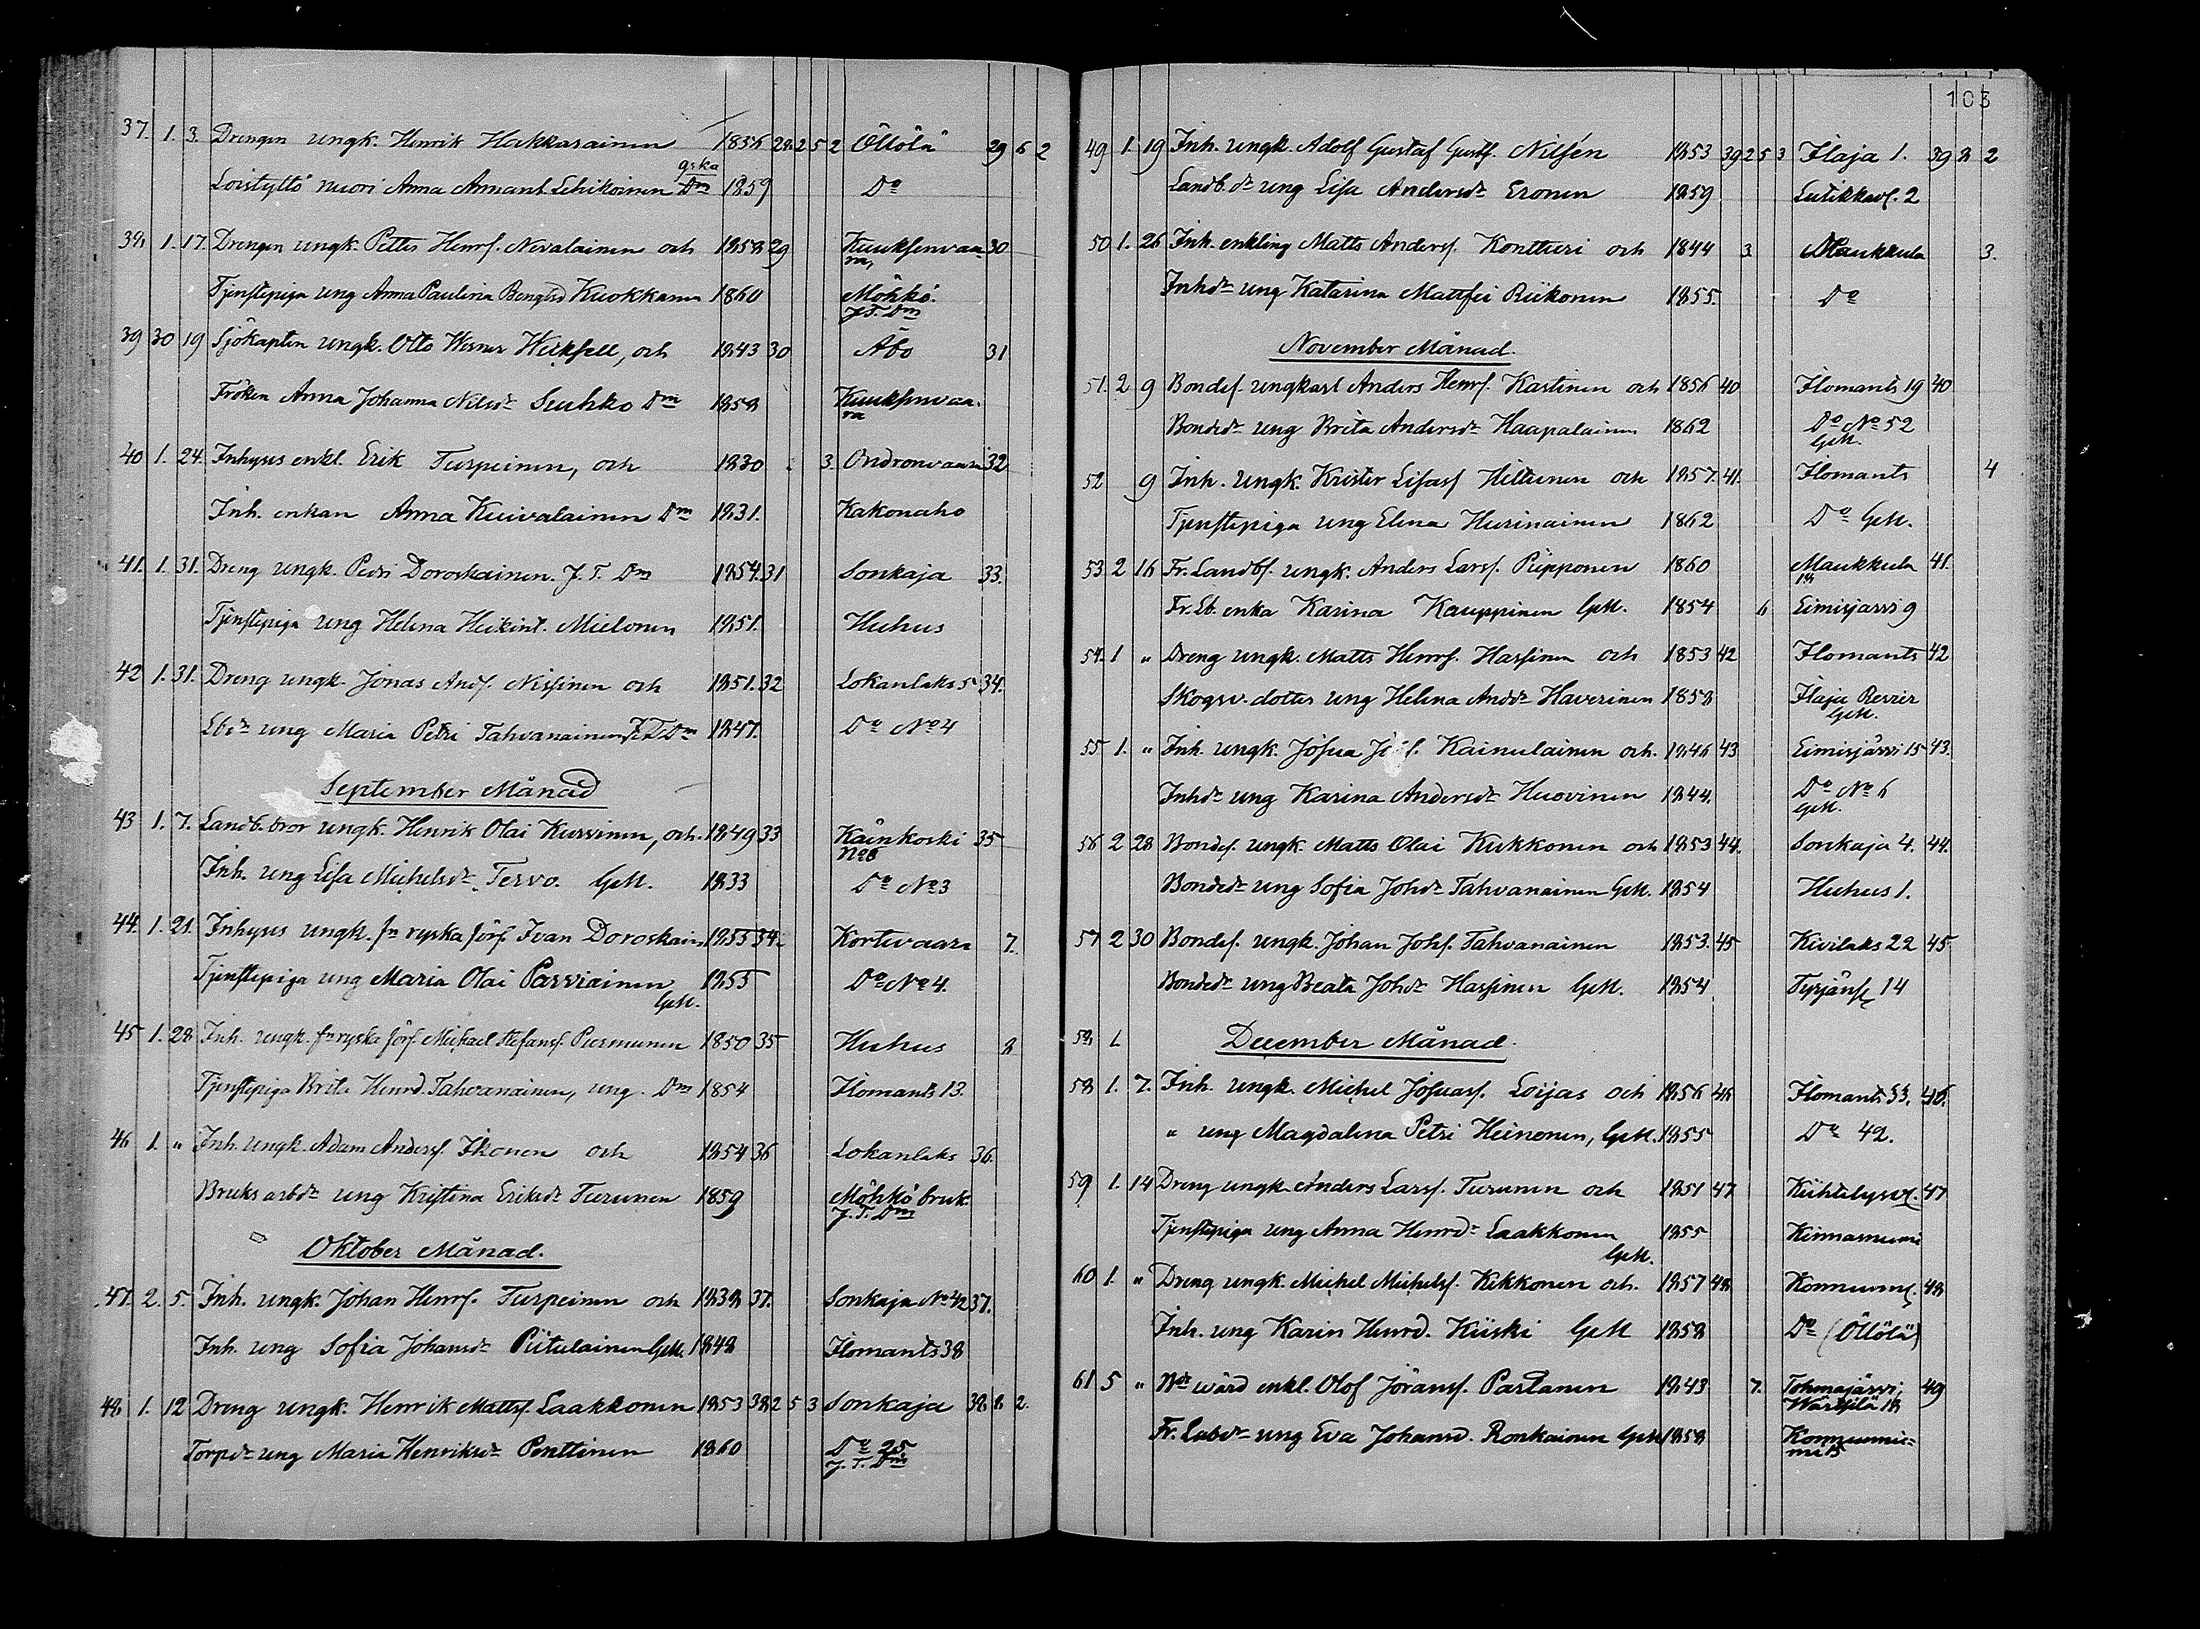 37. 1. 3. Drengen ungk. Henrik Hakkarainen 1856 28 2 5 2 Öllölä 29 6 2
Loistyttö nuori Anna Armant. Lehikoinen gska Dm 1859 Do
38 1. 17. Drengen ungk. Petter Henrs. Nevalainen och 1858 29 Kuuksenvaara, 30
Tjenstepiga ung Anna Paulina Bengtsd Kuokkanen 1860 Möhkö. J.T. Dm
39 30 19 Sjökapten ungk. Otto Werner Heikfell, och 1843 30 Åbo 31
Fröken Anna Johanna Nilsdr Suhko Dm 1858 Kuuksenvaara
40 1. 24. Inhyses enkl. Erik Turpeinen, och 1830 3. Ondronvaara 32
Inh. enkan Anna Kuivalainen Dm 1831. Kakonaho
41. 1. 31. Dreng ungk. Petri Doroskainen. J.T. Dm 1854. 31 Sonkaja 33.
Tjenstepiga ung Helena Heikint. Mielonen 1851. Huhus
42 1. 31. Dreng ungk. Jonas Ands. Nissinen och 1851. 32 Lokanlaks 5 34.
Lbdr ung Maria Petri Tahvanainen J.T. Dm 1847. Do No 4
September Månad
43 1. 7. Landb. bror ungk. Henrik Olai Kurvinen, och. 1849 33 Käinkoski No 8 35
Inh. ung Lisa Michelsdr Tervo. GM. 1833 Do No 3
44. 1. 21. Inhyses ungk. fn ryska förs. Ivan Doroskain 1855 34. Kortevaara 7.
Tjenstepiga ung Maria Olai Parviainen GM. 1855 Do No 4.
45 1. 28 Inh. ungk. fn ryska förs. Michael Stefans. Purmunen 1850 35 Huhus 8
Tjenstepiga Brita Henrd. Tahvanainen, ung. Dm 1854 Ilomants 13.
46 1. " Inh. ungk. Adam Anders. Ikonen och 1854 36 Lokanlaks 36.
Bruks arbdr ung Kristina Eriksdr Turunen 1859 Möhkö bruk. J.T. Dm
Oktober Månad.
47. 2. 5. Inh. ungk. Johan Henrs. Turpeinen och 1838 37. Sonkaja No 42 37.
Inh. ung Sofia Johansdr Piitulainen GM. 1848 Ilomants 38
48. 1. 12 Dreng ungk. Henrik Matts. Laakkonen 1853 38 2 5 3 Sonkaja 38. 8. 2.
Torpdr ung Maria Henriksdr Penttinen 1860 Do 25 J.T. Dm
103
49 1. 19 Inh. ungk. Adolf Gustaf Gusts. Nilsén 1853 39 2 5 3 Ilaja 1. 39 8 2
Landb. dr ung Lisa Andersdr Eronen 1859 Lutikkav. 2
50 1. 26 Inh. enkling Matts Anders. Kontturi och 1844 3. Maukkula 3.
Inhdr ung Katarina Mattsi Riikonen 1855. Do
November Månad.
51. 2 9 Bondes. ungkarl Anders Henrs. Kastinen och 1856 40 Ilomants 19 40
Bondedr ung Brita Andersdr Haapalainen 1862 Do No 52 GM.
52 9 Inh. ungk. Krister Lisas. Hiltunen och 1857. 41. Ilomants 4
Tjenstepiga ung Elena Hurinainen 1862 Do GM.
53 2 16 Fr. Landbs. ungk. Anders Larss. Piipponen 1860 Maukkula 18 41.
Fr. Lb. enka Karina Kauppinen GM. 1854 6 Eimisjarvi 9
54. 1 " Dreng ungk. Matts Henrs. Hassinen och 1853 42 Ilomants 42
Skogsv. dotter ung Helena Andsdr Haverinen 1858 Ilaja Revier GM.
55 1. " Inh. ungk. Josua Kainulainen och. 1846 43 Eimisjärvi 15 43.
Inhdr ung Karina Andersdr Huovinen 1844. Do No 6 GM.
56 2 28 Bondes. ungk. Matts Olai Kukkonen och 1853 44. Sonkaja 4. 44.
Bondedr ung Sofia Johdr Tahvanainen GM. 1854 Huhus 1.
57 2 30 Bondes. ungk. Johan Johs. Tahvanainen 1853. 45 Kivilaks 22 45
Bondedr ung Beata Johdr Hassinen GM. 1854 Tyrjäns 14
58 1. December Månad.
58 1. 7. Inh. ungk. Michel Josuas. Loijas och 1856 46 Ilomants 33. 46.
" ung Magdalena Petri Heinonen, GM. 1855 Do 42.
59 1. 14 Dreng ungk. Anders Larss. Turunen och 1851 47 Kiihtelysv. 47
Tjenstepiga ung Anna Henrdr Laakkonen GM. 1855 Kinnasniemi
60 1. " Dreng ungk. Michel Michels. Kukkonen och. 1857 48 Konnunn. 48
Inh. ung Karin Henrd. Kiiski GM 1858 Do (Öllölä)
61 5 " Ndr wärd enkl. Olof Jörans. Partanen 1843 7. Tohmajärvi, Wärtsilä 18 49
Fr. Labdr ung Eva Johansd. Ronkainen GM 1858 Konnunniemi 15